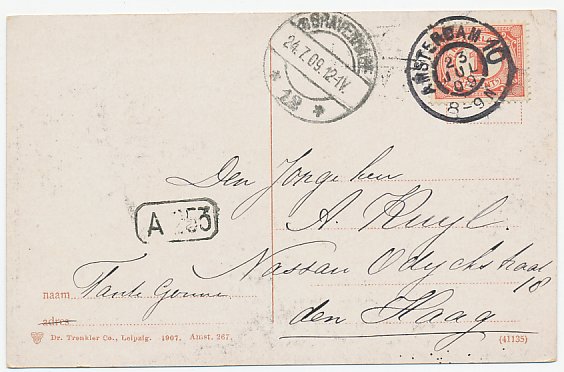 'SGRAVENHAGE
24.7.09.12-1V.
* 12 *
AMSTERDAM 10
23
JUL
09
8-9N
A 253
Den Jonge heer
A. Kuyl.
Nassau Odyckstraat
18
den Haag
naam Tante
adres
Dr. Trenkler Co., Leipzig. 1907. Amst. 267.
(41135)